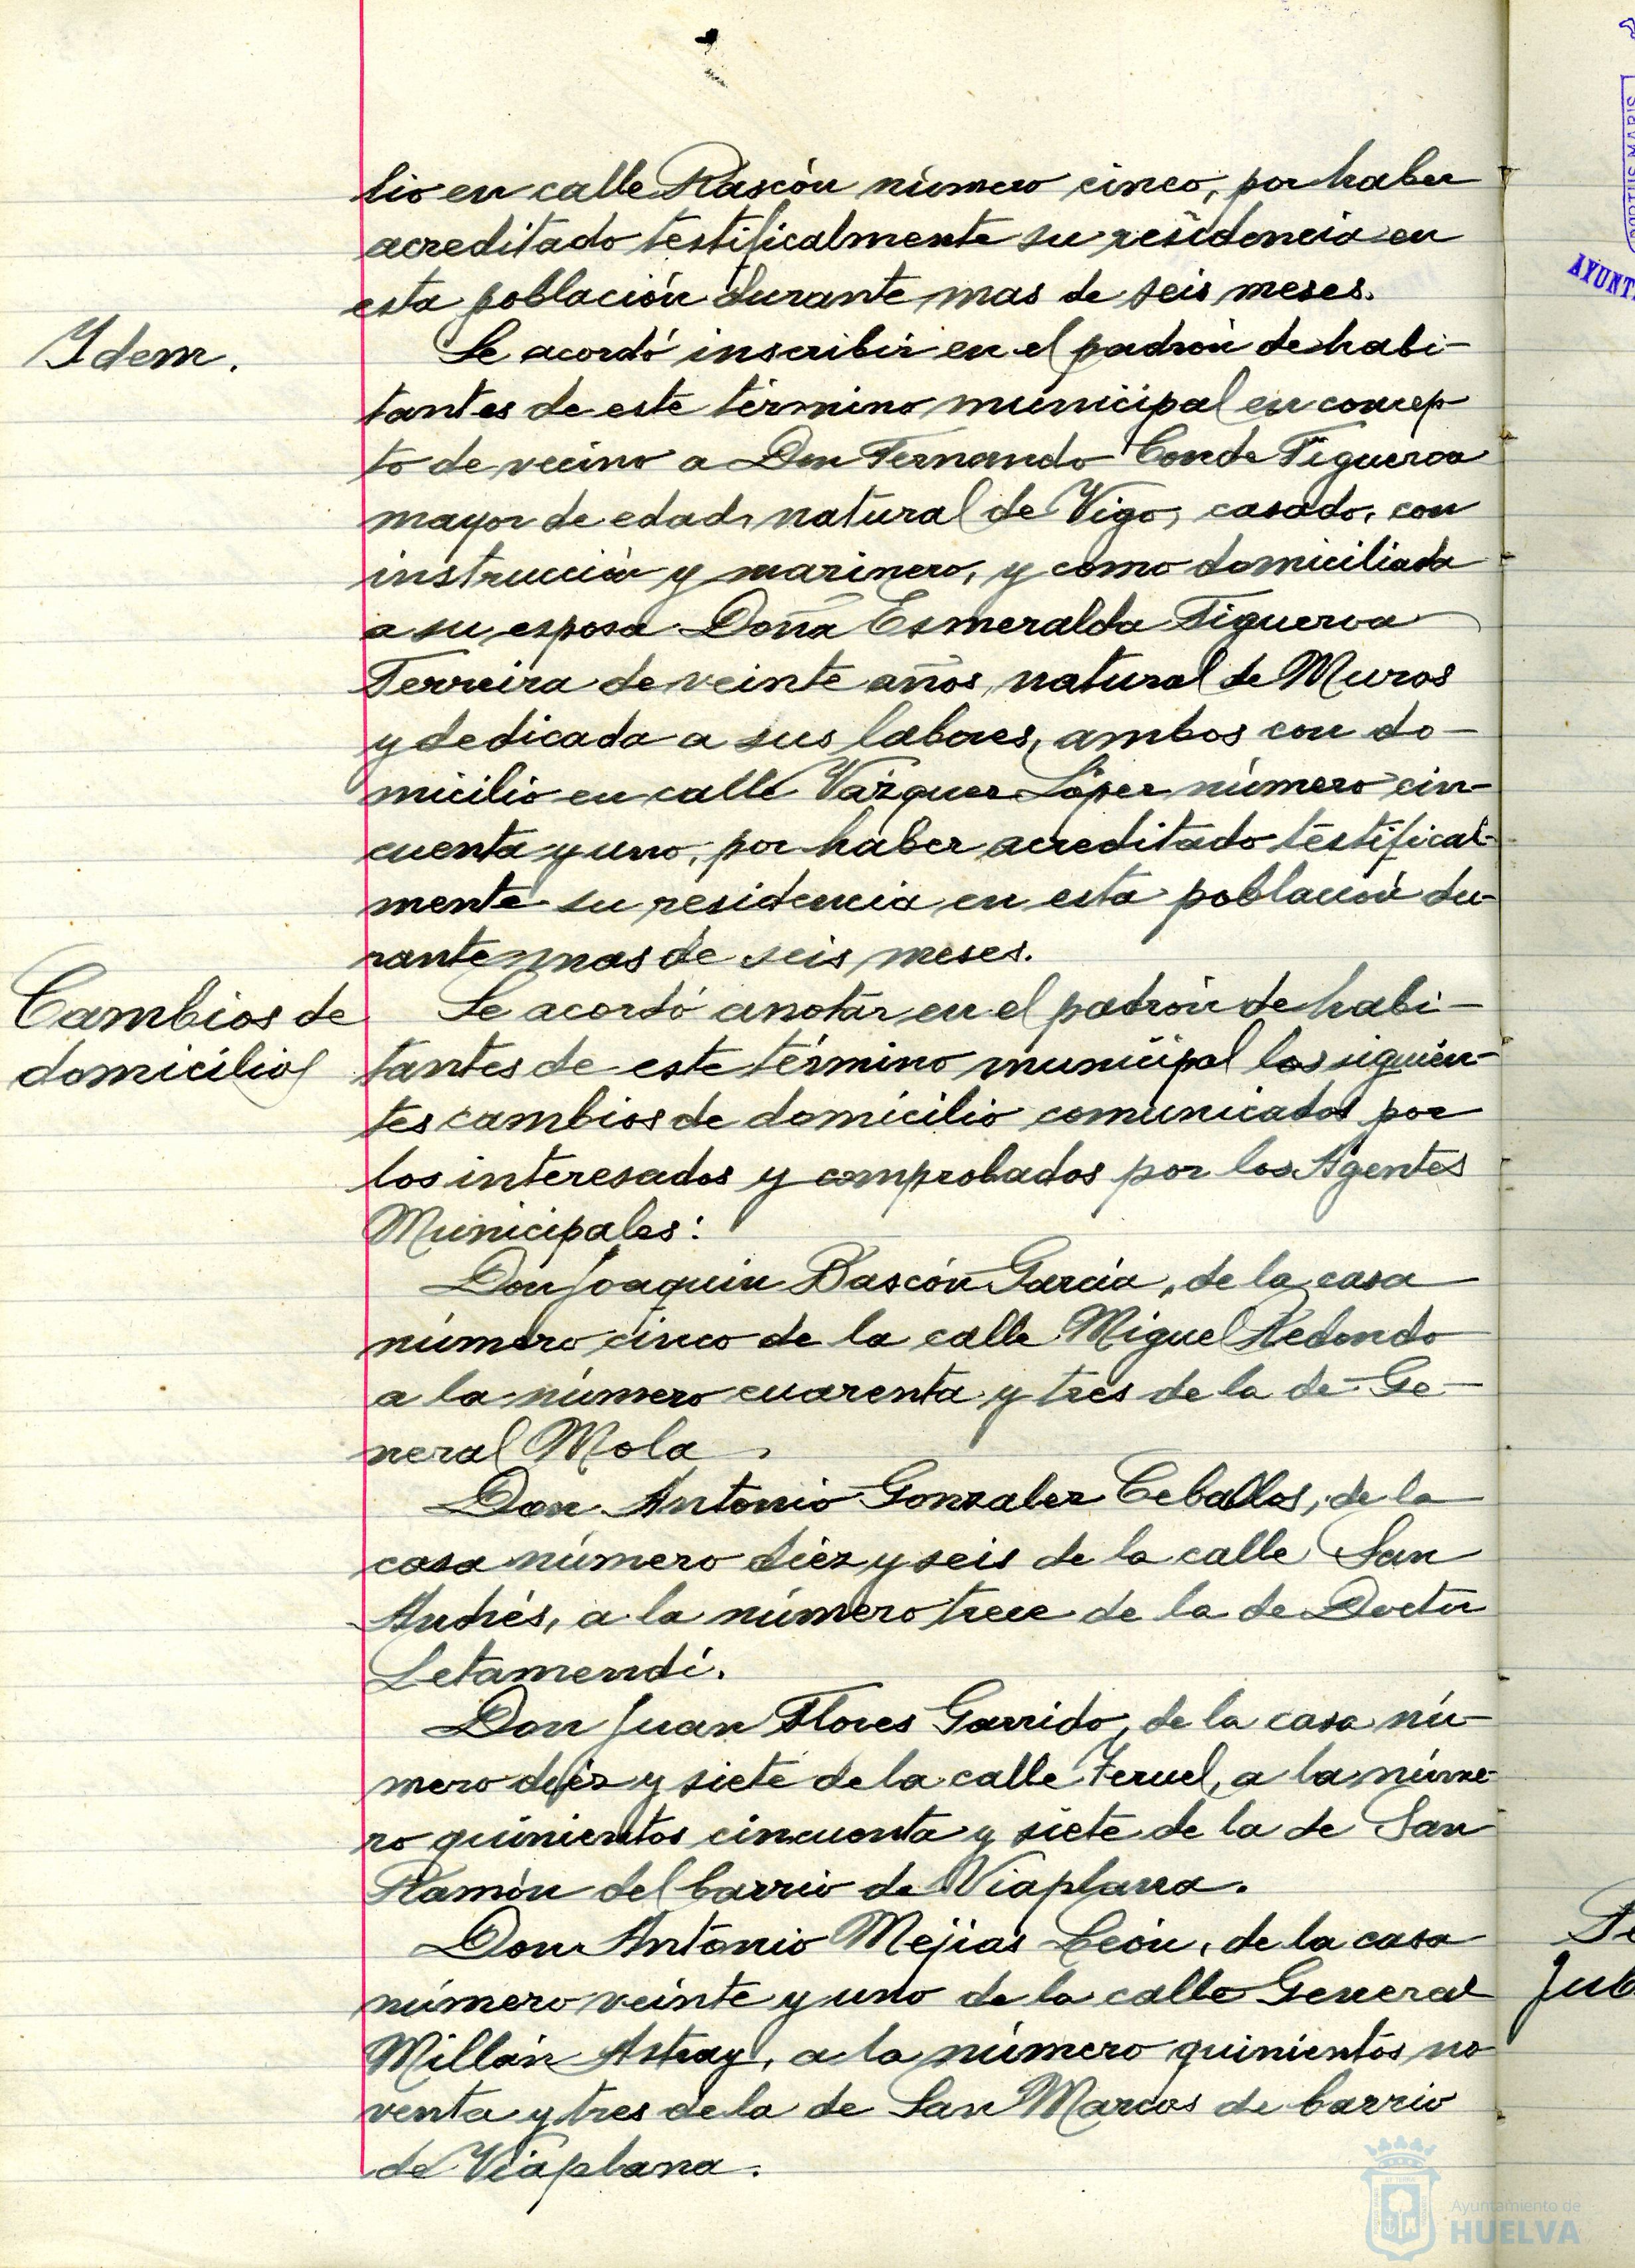 lio en calle Rascón número cinco, por haber
acreditado testificalmente su residencia en
esta población durante mas de seis meses.
Idem.
Se acordó inscribir en el padrón de habi-
tantes de este término municipal en concep-
to de vecino a Don Fernando Conde Figueroa
mayor de edad, natural de Vigo, casado, con
instrucción y marinero, y como domiciliada
a su esposa Doña Esmeralda Figueroa
Ferreira de veinte años, natural de Muros
y dedicada a sus labores, ambos con do-
micilio en calle Vázquez López número cin-
cuenta y uno, por haber acreditado testifical-
mente su residencia en esta población du-
rante mas de seis meses.
Cambios de
domicilio
Se acordó anotar en el padrón de habi-
tantes de este término municipal los siguien-
tes cambios de domicilio comunicados por
los interesados y comprobados por los Agentes
Municipales:
Don Joaquin Bascón García, de la casa
número cinco de la calle Miguel Redondo
a la número cuarenta y tres de la de Ge-
neral Mola.
Don Antonio Gonzalez Ceballos, de la
casa número diez y seis de la calle San
Andrés, a la número trece de la de Doctor
Letamendi.
Don Juan Flores Garrido, de la casa nú-
mero diez y siete de la calle Teruel, a la núme-
ro quinientos cincuenta y siete de la de San
Ramón del barrio de Viaplana.
Don Antonio Mejias León, de la casa
número veinte y uno de la calle General
Millán Astray, a la número quinientos no
venta y tres de la de San Marcos de barrio
de Viaplana.
PORTUS MARIS
AYUNT
Jub
Ayuntamiento de
HUELVA